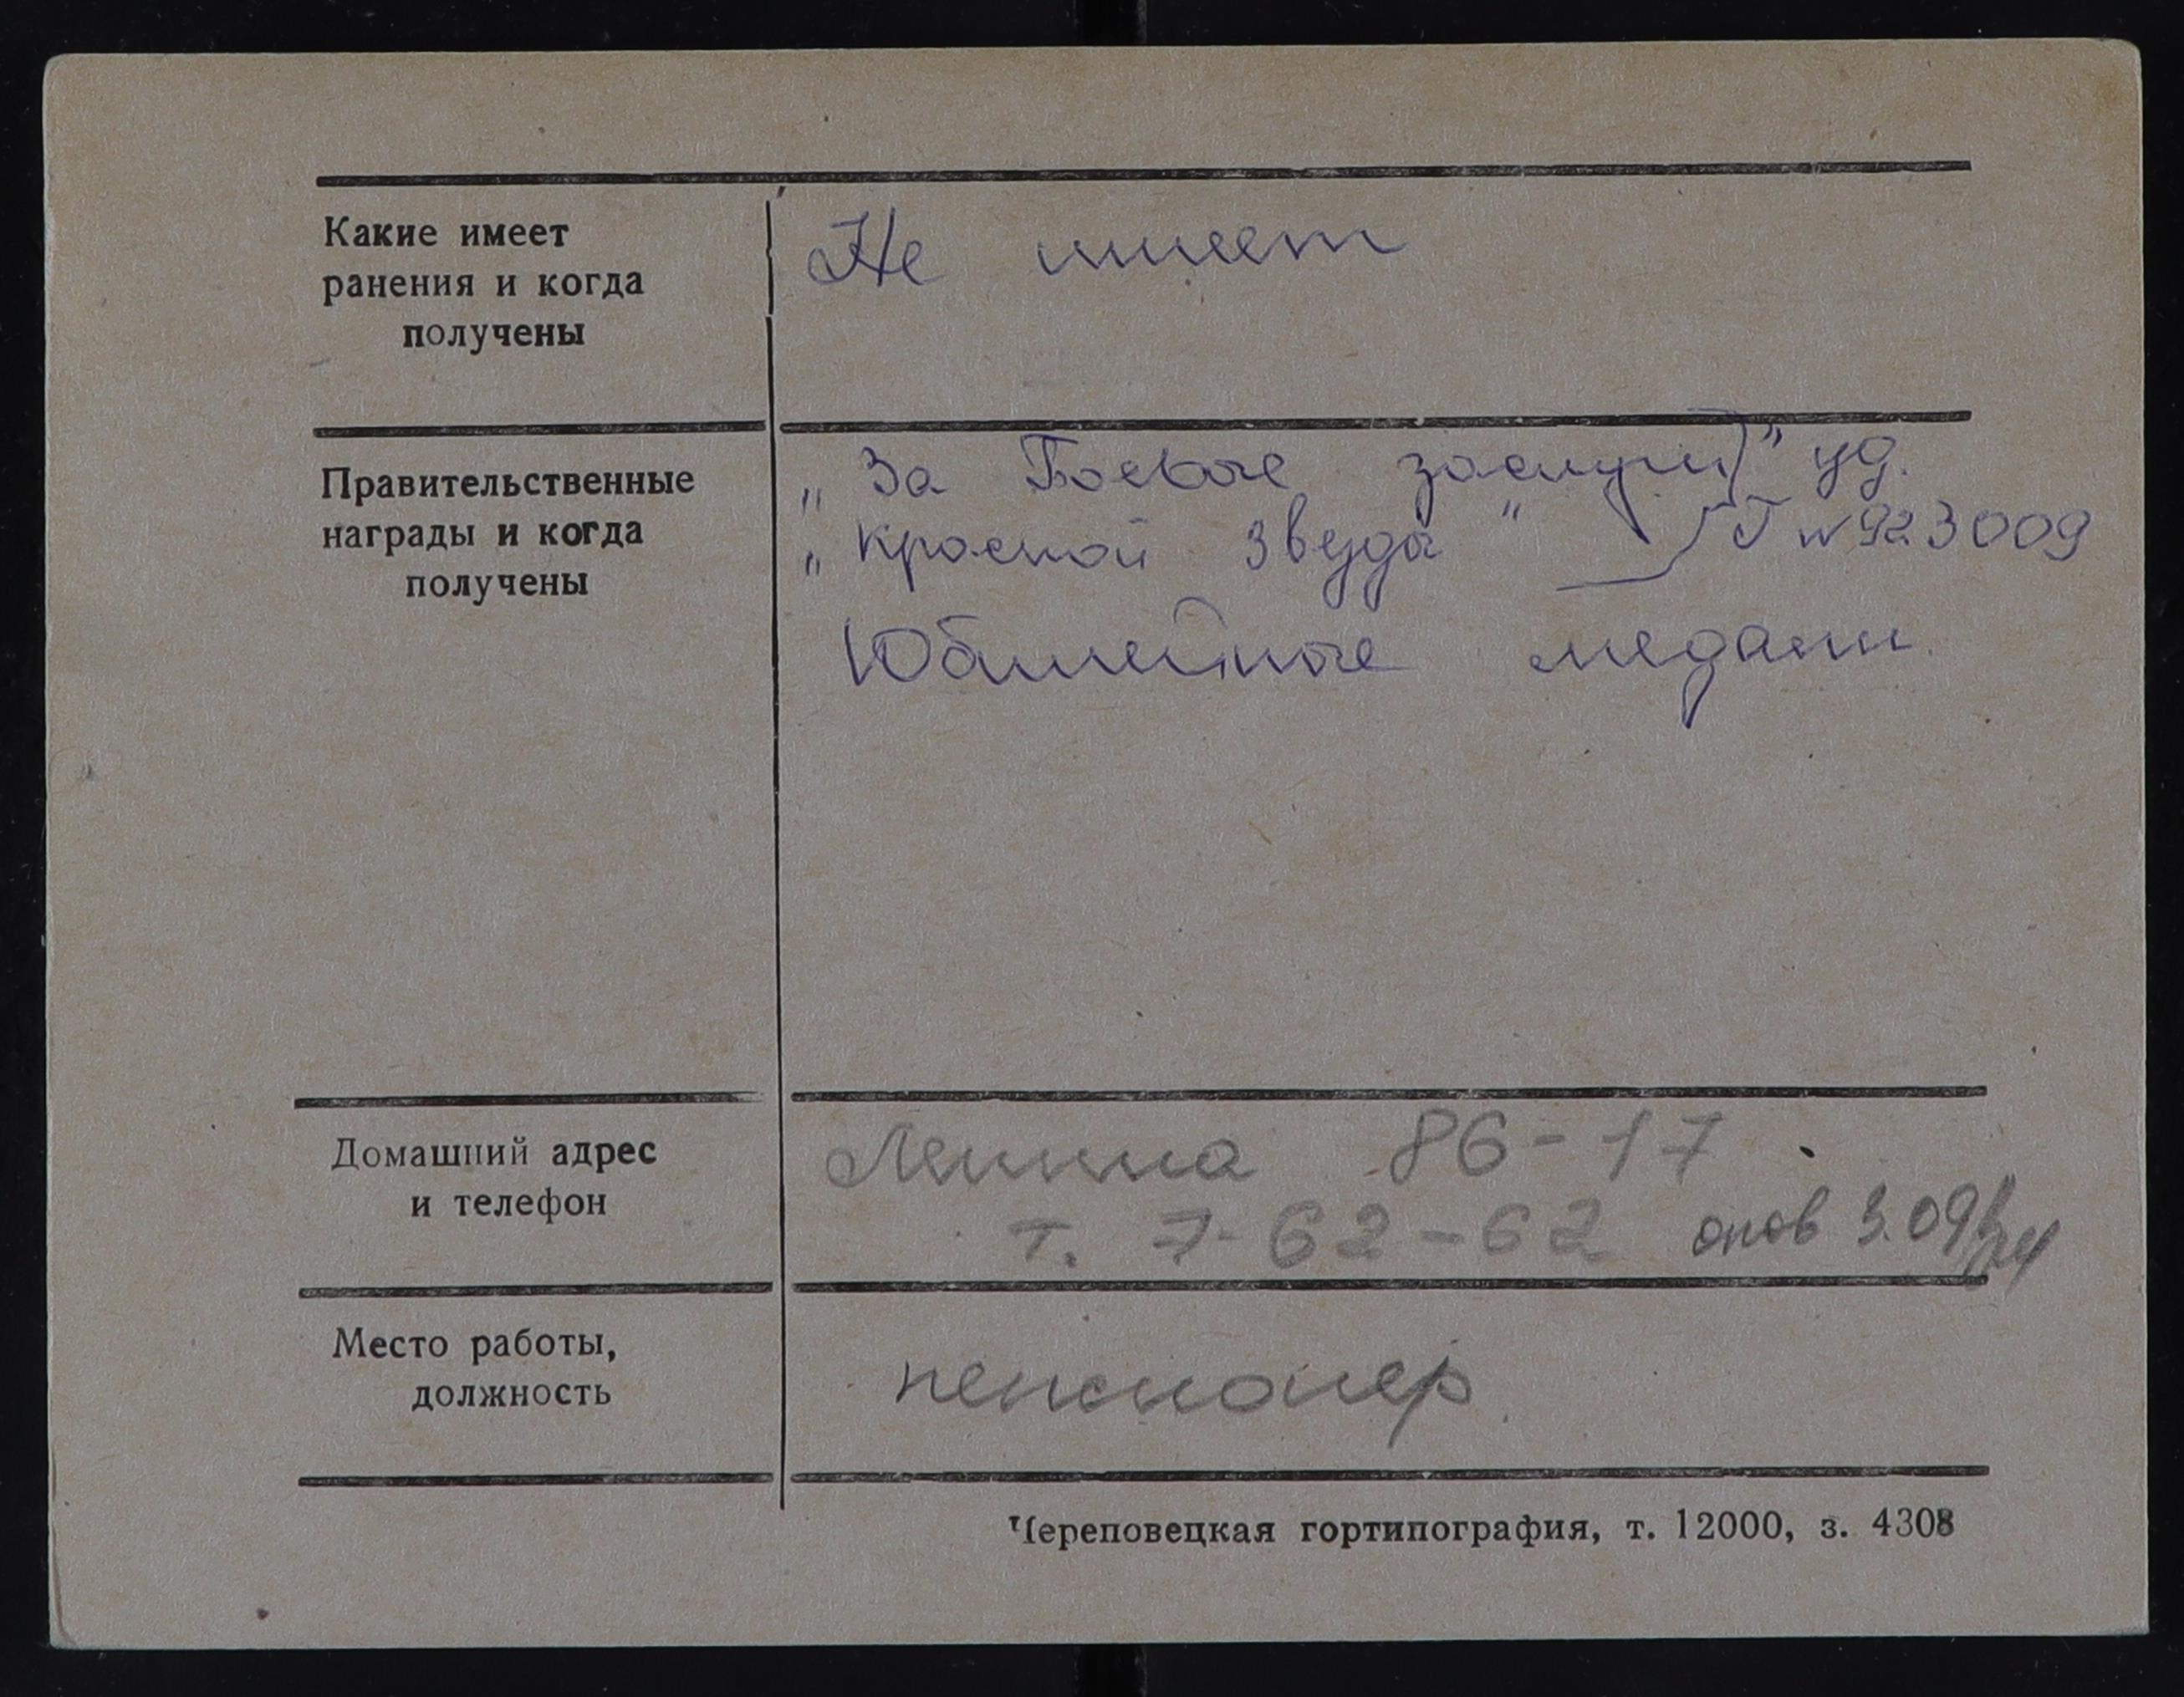 Какие имеет
ранения и когда
получены
Не имеет
Правительственные
награды и когда
получены
„За Боевые заслуги" уд.
„Красной Звезды" Г №923009
Юбилейные медали.
Домашний адрес
и телефон
Ленина 86-17
т. 7-62-62 3.09
Место работы,
должность
пенсионер.
Череповецкая гортипография, т. 12000, з. 4308